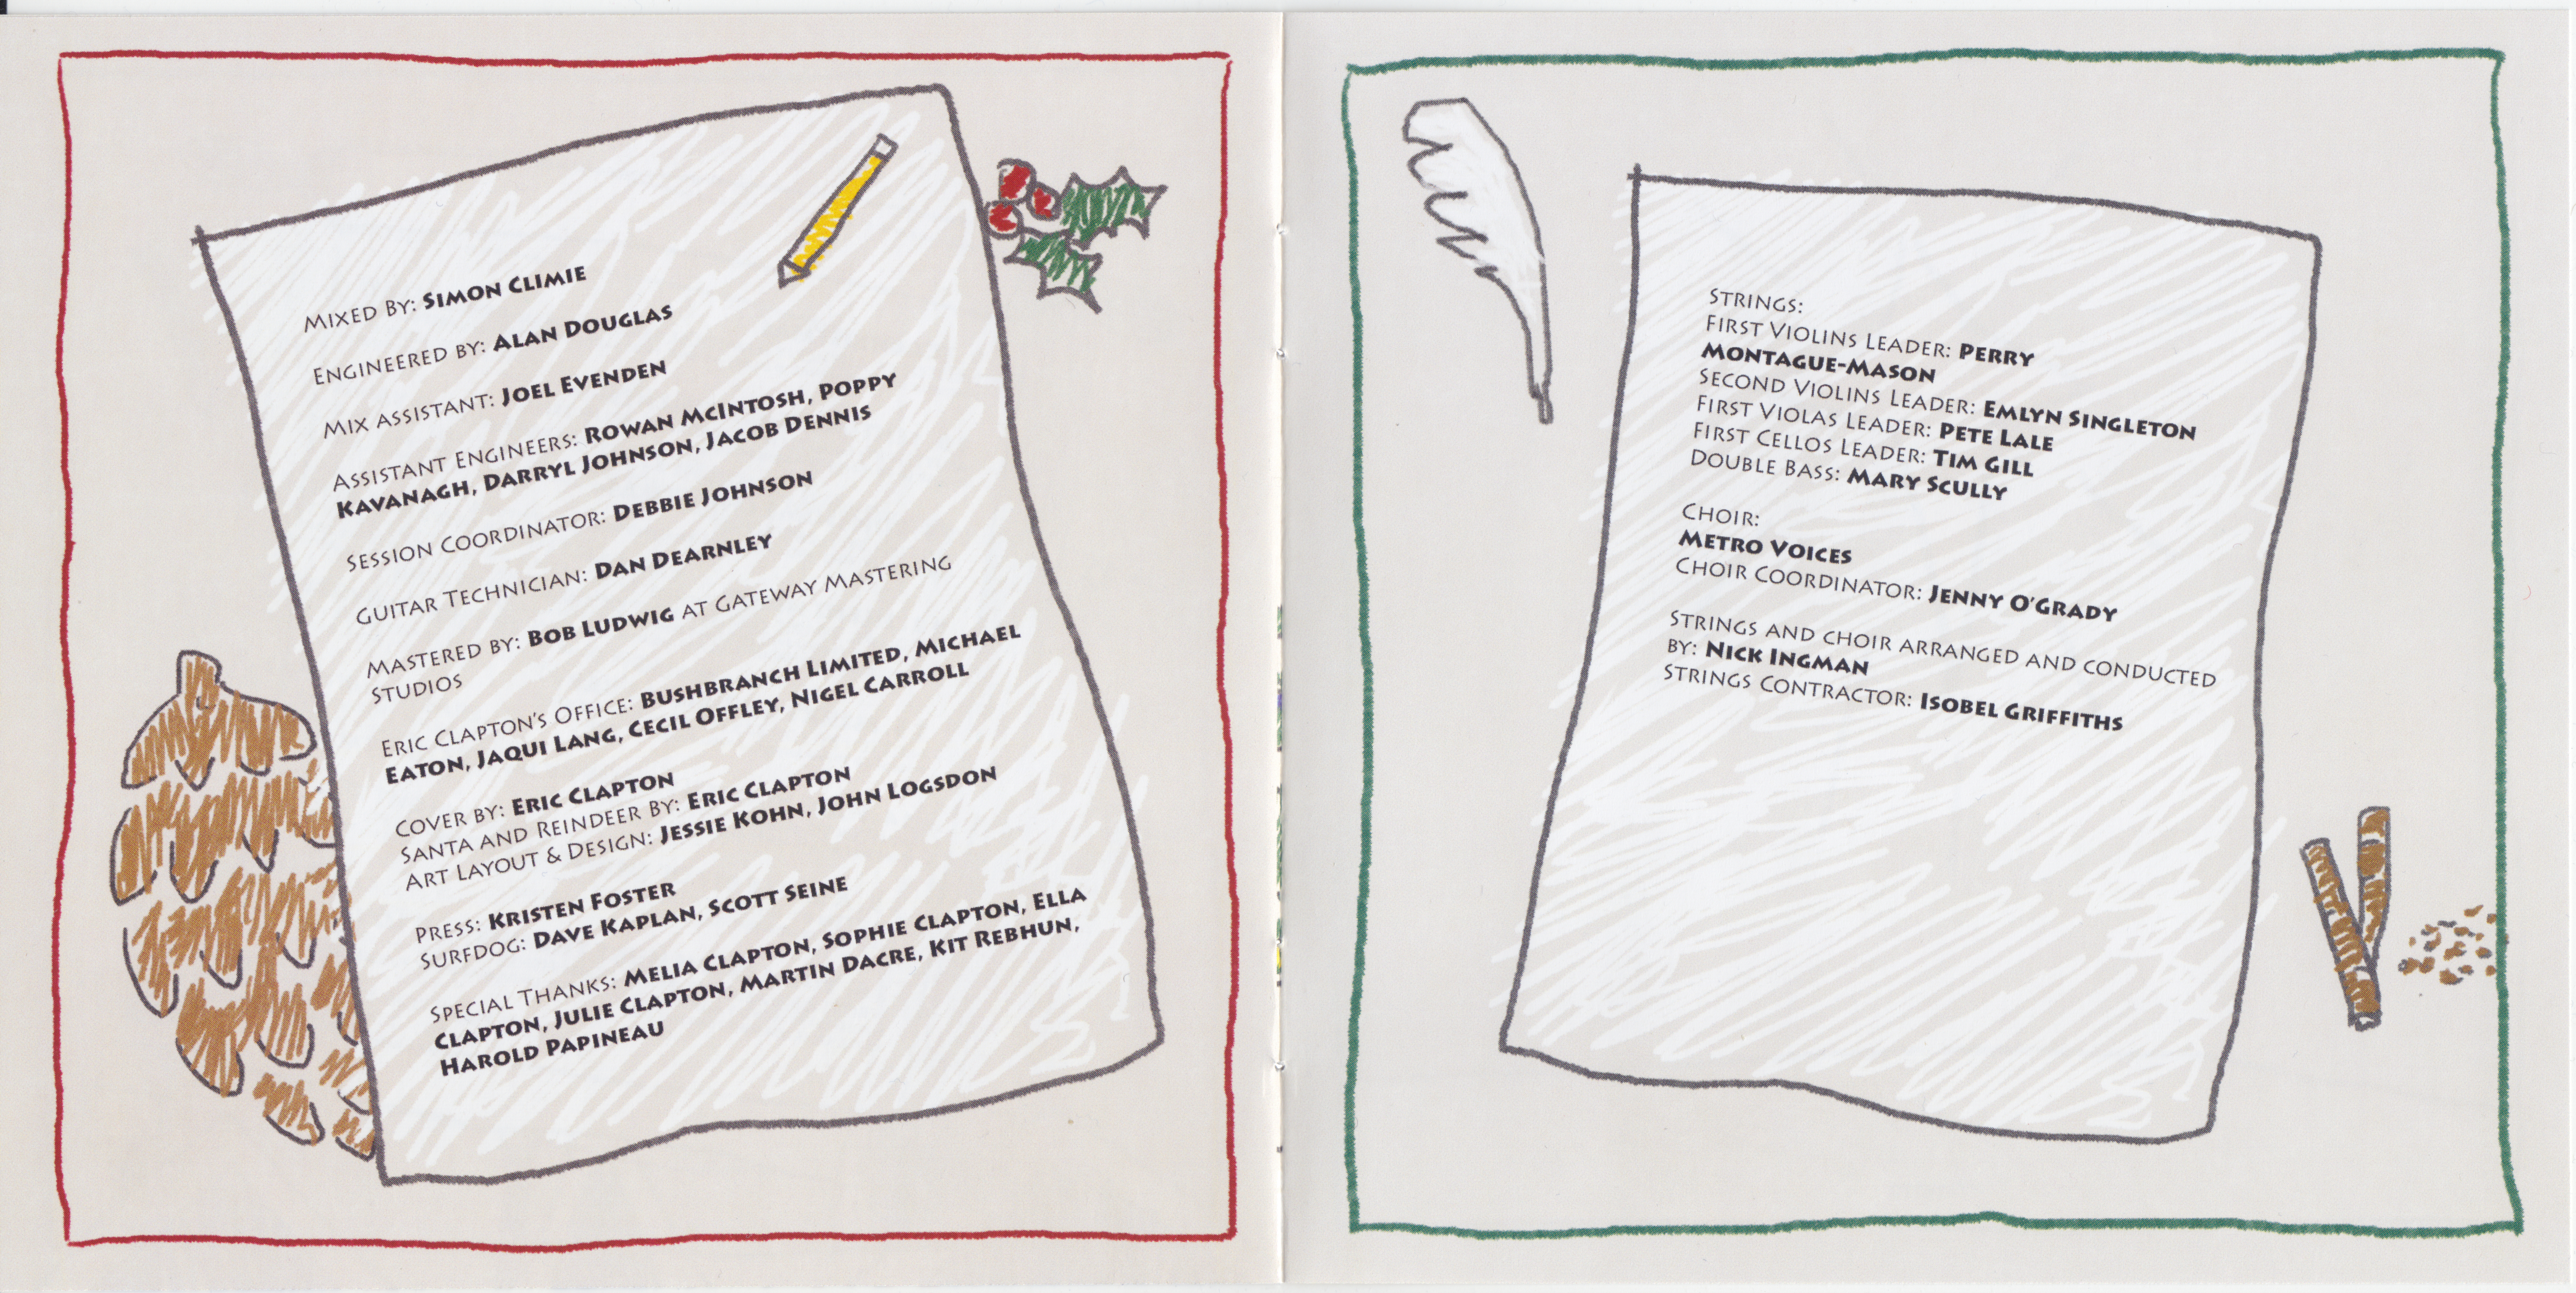 Mixed By: Simon Climie
Engineered by: Alan Douglas
Mix Assistant: Joel Evenden
Assistant Engineers: Rowan McIntosh, Poppy
Kavanagh, Darryl Johnson, Jacob Dennis
Session Coordinator: Debbie Johnson
Guitar Technician: Dan Dearnley
Mastered by: Bob Ludwig at Gateway Mastering
Studios
Eric Clapton's Office: Bushbranch Limited, Michael
Eaton, Jaqui Lang, Cecil Offley, Nigel Carroll
Cover by: Eric Clapton
Santa and Reindeer By: Eric Clapton
Art Layout & Design: Jessie Kohn, John Logsdon
Press: Kristen Foster
Surfdog: Dave Kaplan, Scott Seine
Special Thanks: Melia Clapton, Sophie Clapton, Ella
Clapton, Julie Clapton, Martin Dacre, Kit Rebhun,
Harold Papineau
Strings:
First Violins Leader: Perry
Montague-Mason
Second Violins Leader: Emlyn Singleton
First Violas Leader: Pete Lale
First Cellos Leader: Tim Gill
Double Bass: Mary Scully
Choir:
Metro Voices
Choir Coordinator: Jenny O'Grady
Strings and choir arranged and conducted
by: Nick Ingman
Strings Contractor: Isobel Griffiths